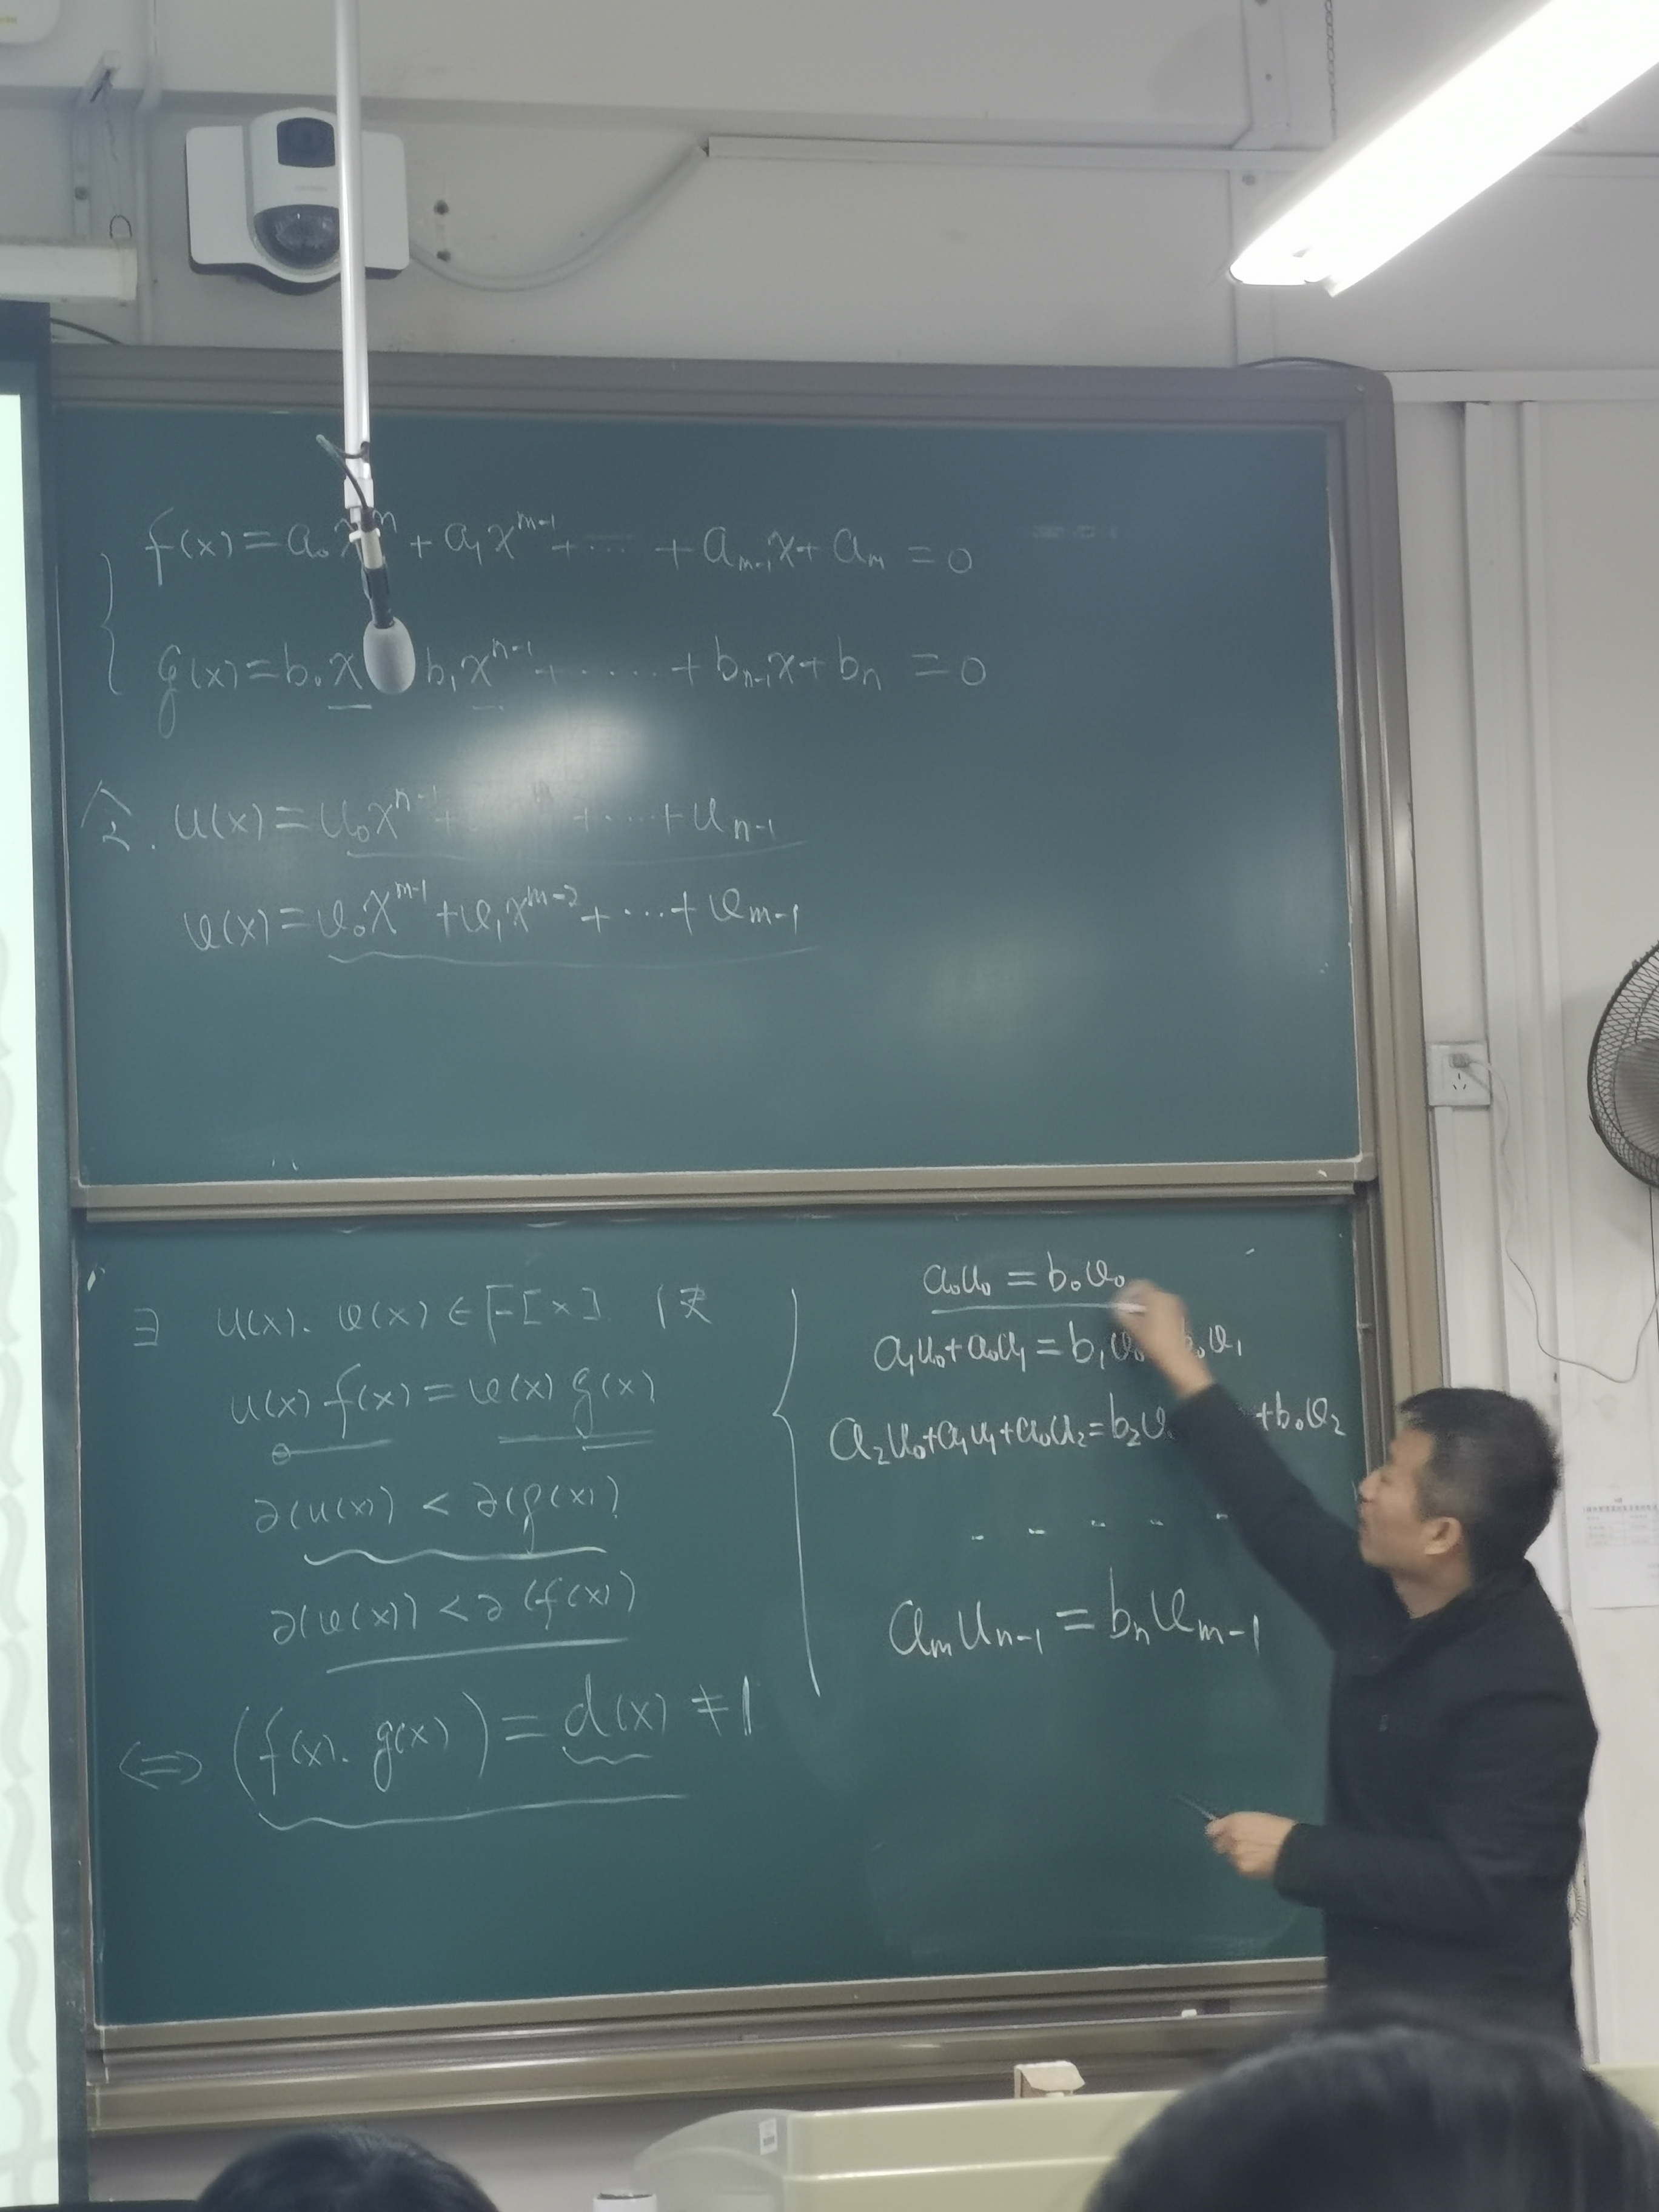 f(x)=a₀x^m+a₁x^{m-1}+······+a_{m-1}x+a_m=0
g(x)=b₀x b₁x^{n-1}+······+b_{n-1}x+b_n=0
令. u(x)=u₀x^{n-1}+ +····+u_{n-1}
v(x)=v₀x^{m-1}+v₁x^{m-2}+···+v_{m-1}
∃ u(x). v(x)∈F[x].
u(x)f(x)=v(x)g(x)
∂(u(x))<∂(g(x))
∂(v(x))<∂(f(x))
⇔ (f(x). g(x))=d(x)≠1
a₀u₀=b₀v₀
a₁u₀+a₀u₁=b₁v₀ b₀v₁
a₂u₀+a₁u₁+a₀u₂=b₂v +b₀v₂
- - - - -
a_m u_{n-1}=b_n v_{m-1}